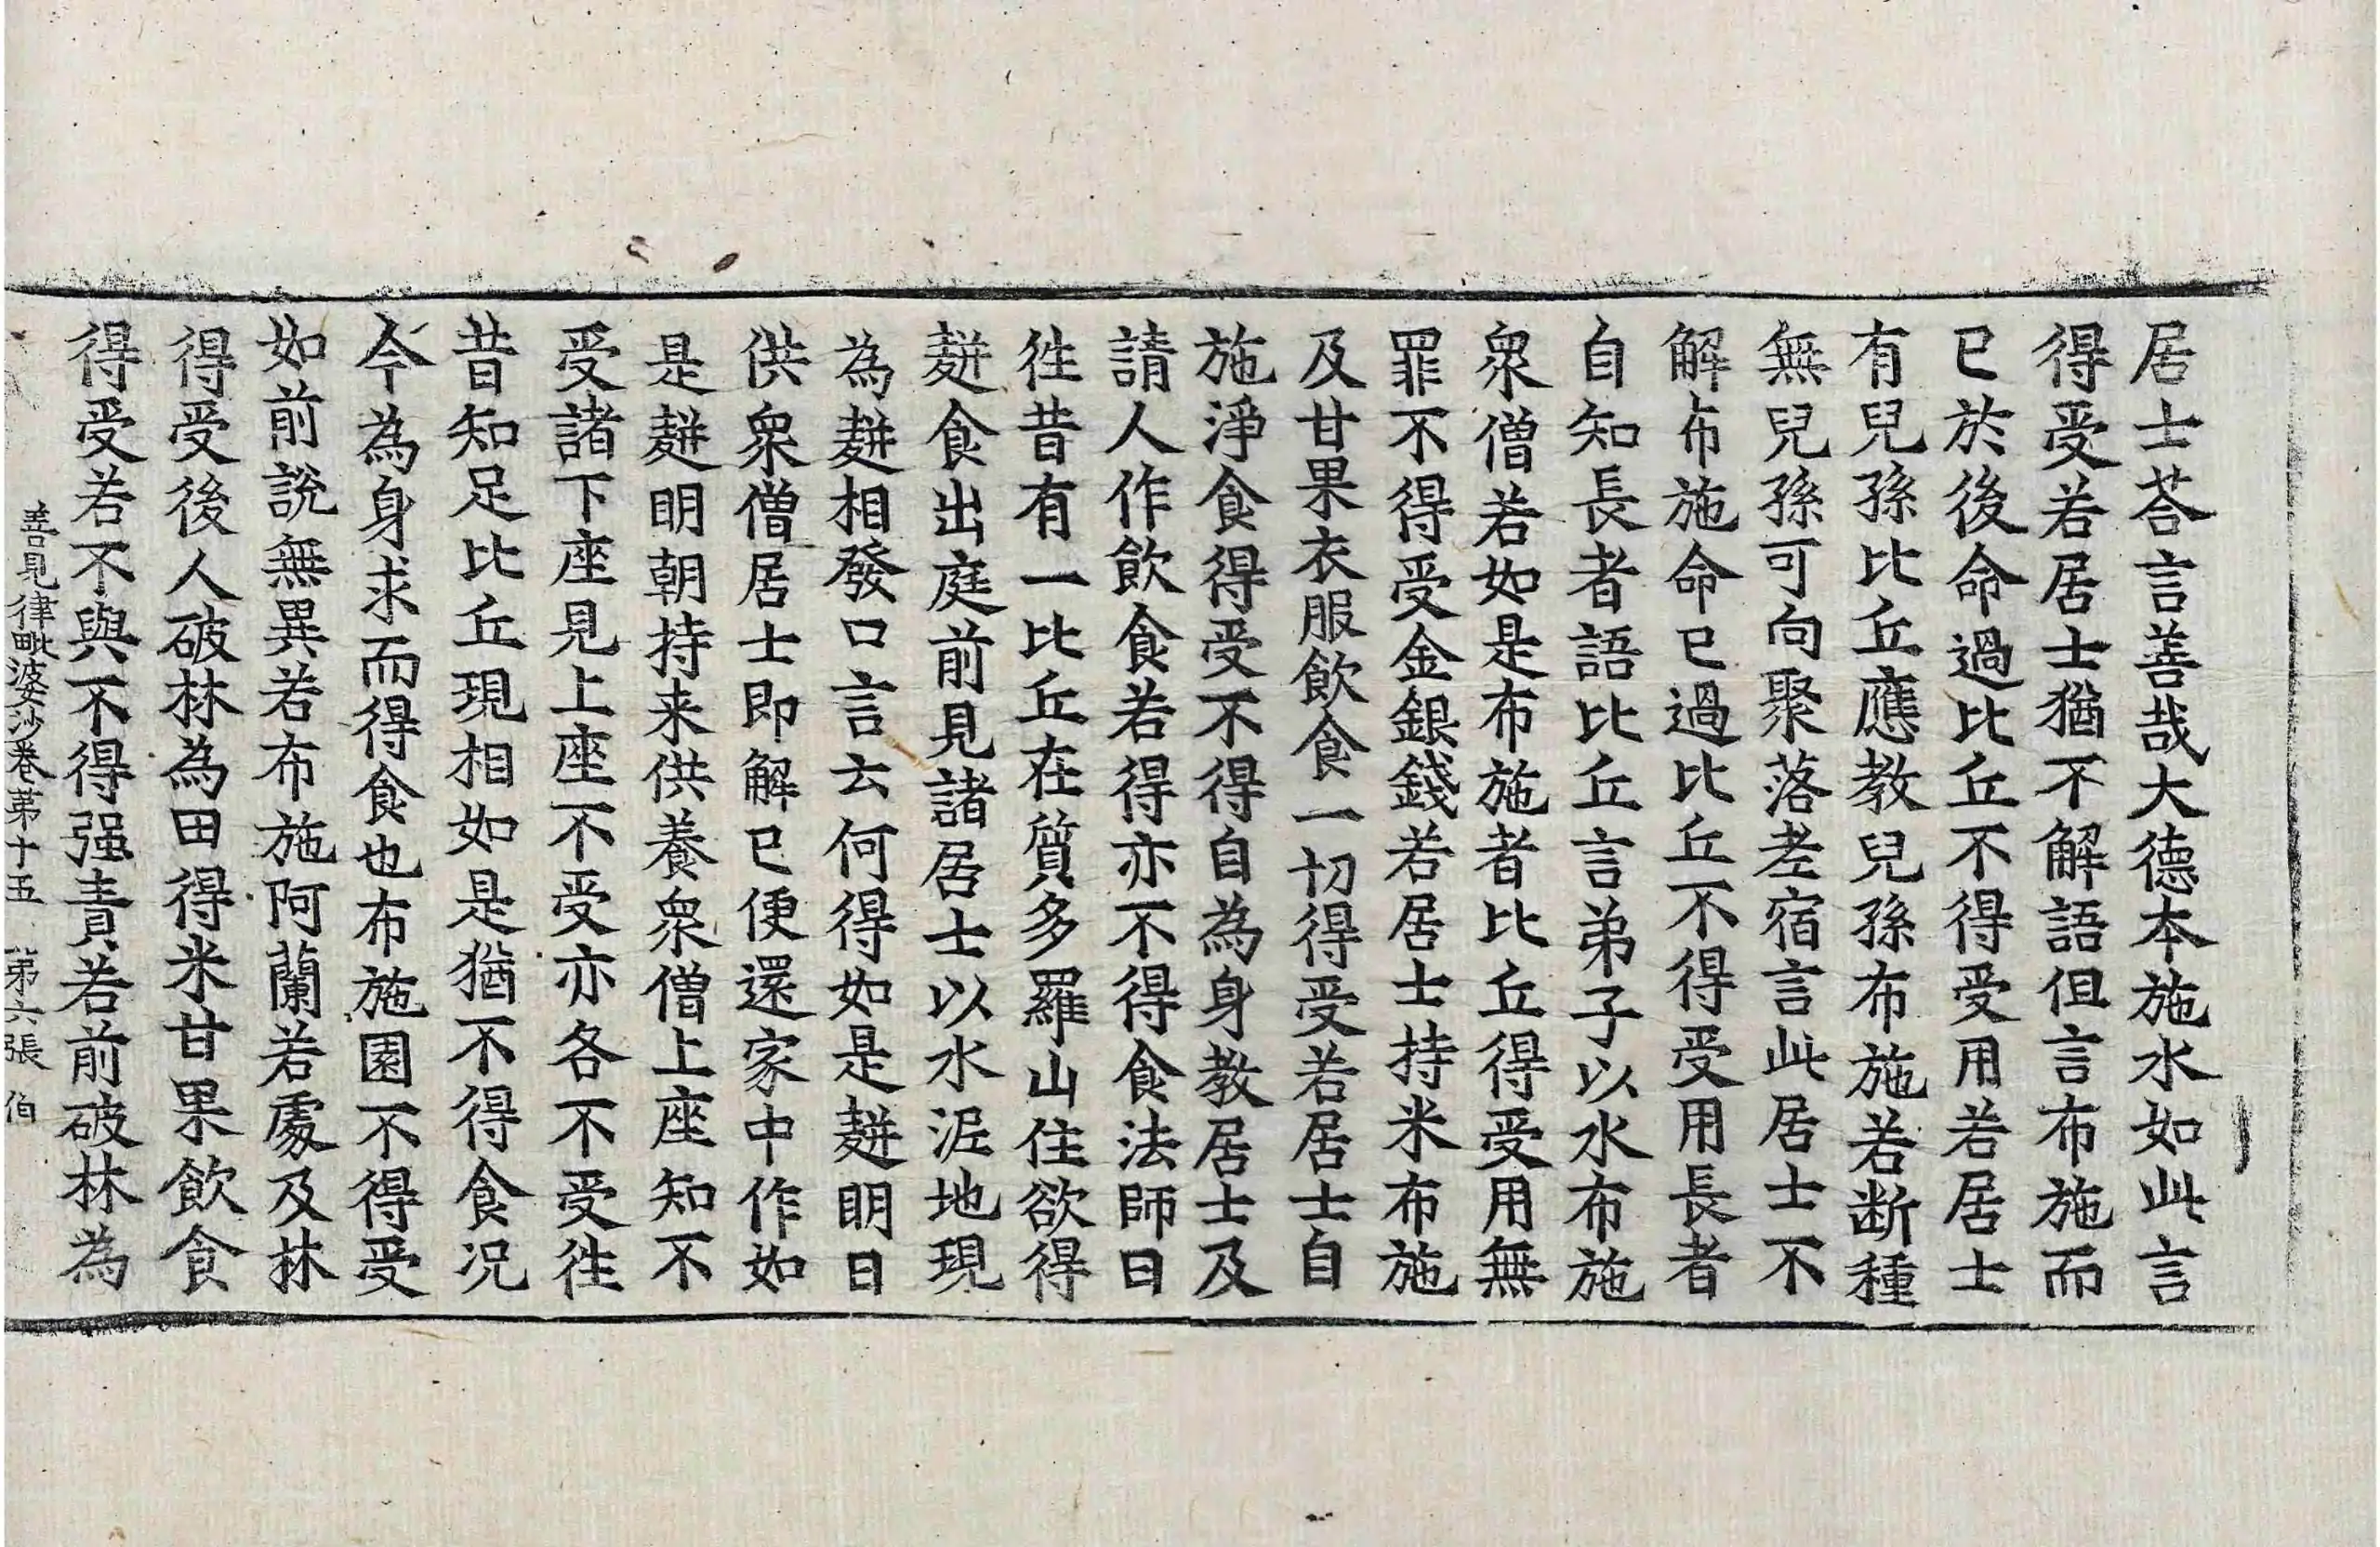 居士荅言善哉大德本施水如此言
得受若居士猶不解語但言布施而
已於後命過比丘不得受用若居士
有兒孫比丘應教兒孫布施若断種
無兒孫可向聚落耆宿言此居士不
解布施命已過比丘不得受用長者
自知長者語比丘言弟子以水布施
衆僧若如是布施者比丘得受用無
罪不得受金銀錢若居士持米布施
及甘果衣服飲食一切得受若居士自
施淨食得受不得自為身教居士及
請人作飲食若得亦不得食法師曰
徃昔有一比丘在質多羅山住欲得
䴵食出庭前見諸居士以水泥地現
為䴵相發口言云何得如是䴵明日
供衆僧居士即解已便還家中作如
是䴵明朝持来供養衆僧上座知不
受諸下座見上座不受亦各不受徃
昔知足比丘現相如是猶不得食况
今為身求而得食也布施園不得受
如前說無異若布施阿蘭若處及林
得受後人破林為田得米甘果飲食
得受若不與不得强責若前破林為
善見律毗婆沙卷第十五　第六張　伯